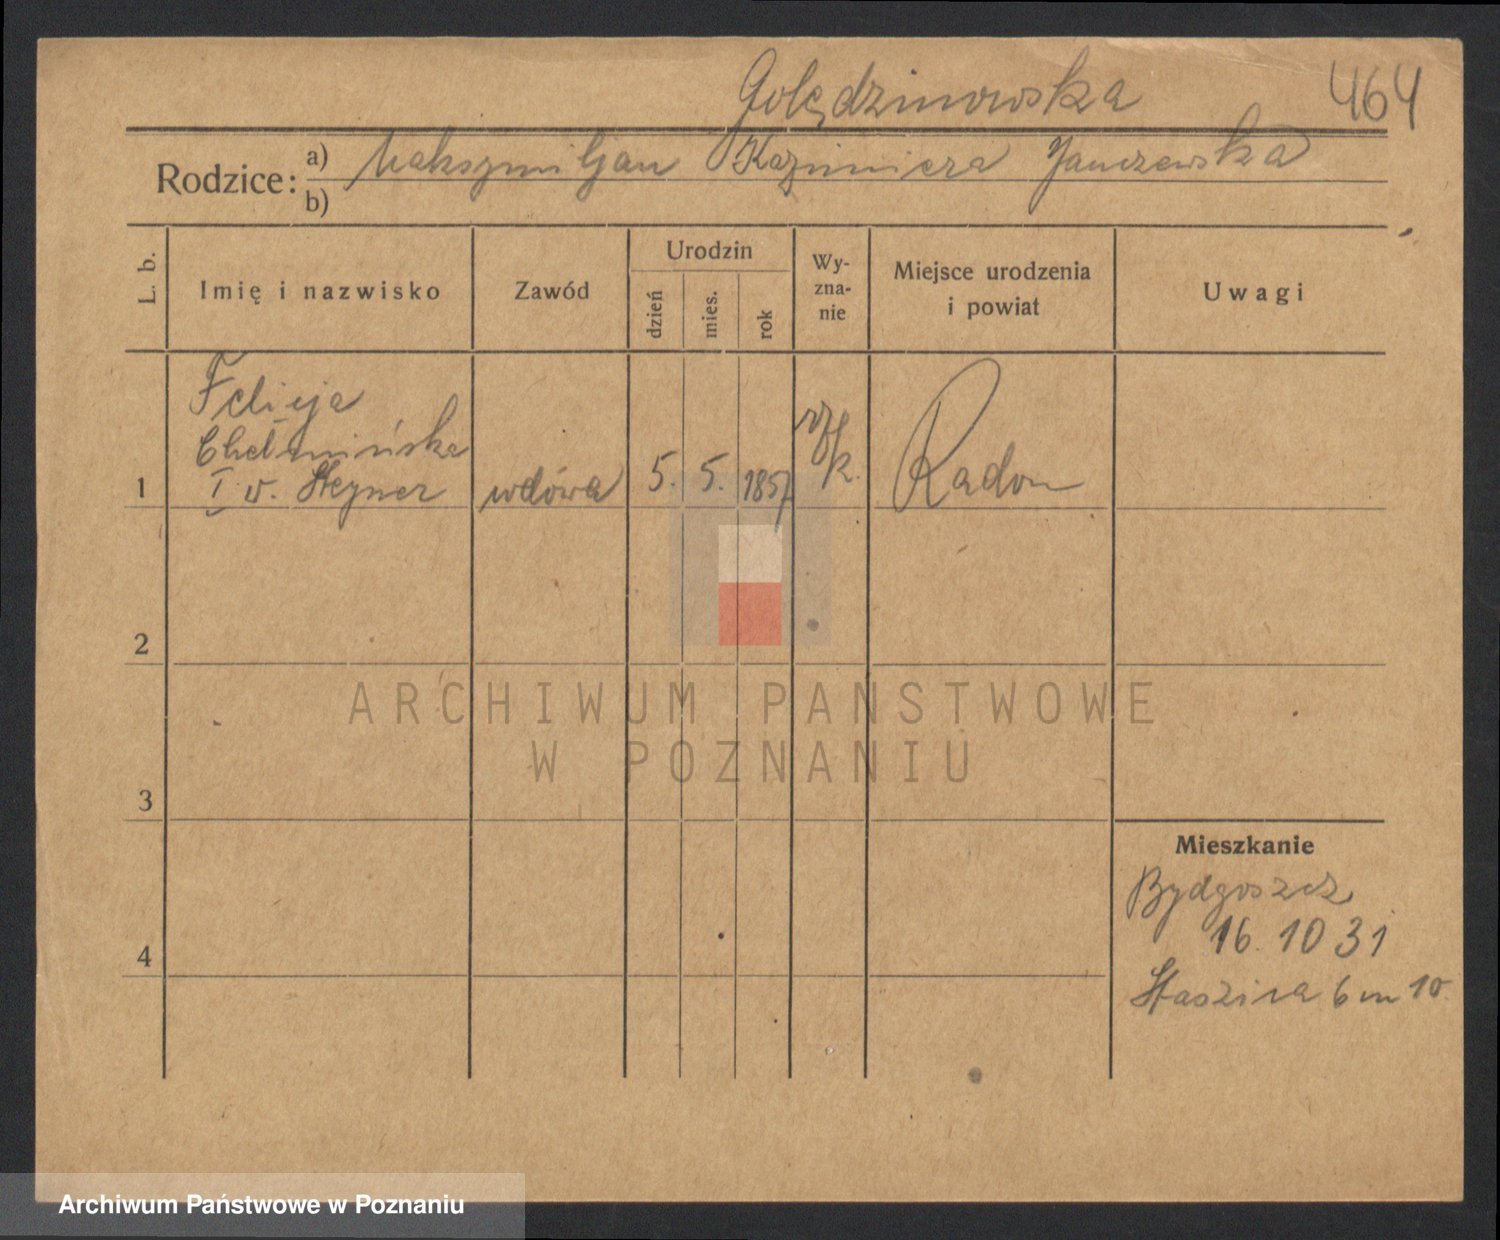 Golędzinowska 464
Rodzice: a) Maksymiljan Kazimiera Janczewska
b)
L. b.
Imię i nazwisko
Zawód
Urodzin
dzień
mies.
rok
Wy-
zna-
nie
Miejsce urodzenia
i powiat
Uwagi
Felicja
Chełmińska
1 I v. Heyner wdówa 5. 5. 1857 rzk. Radom
2
3
4
Mieszkanie
Bydgoszcz
16. 10 31
Staszica 6 m 10.
ARCHIWUM PAŃSTWOWE
W POZNANIU
Archiwum Państwowe w Poznaniu